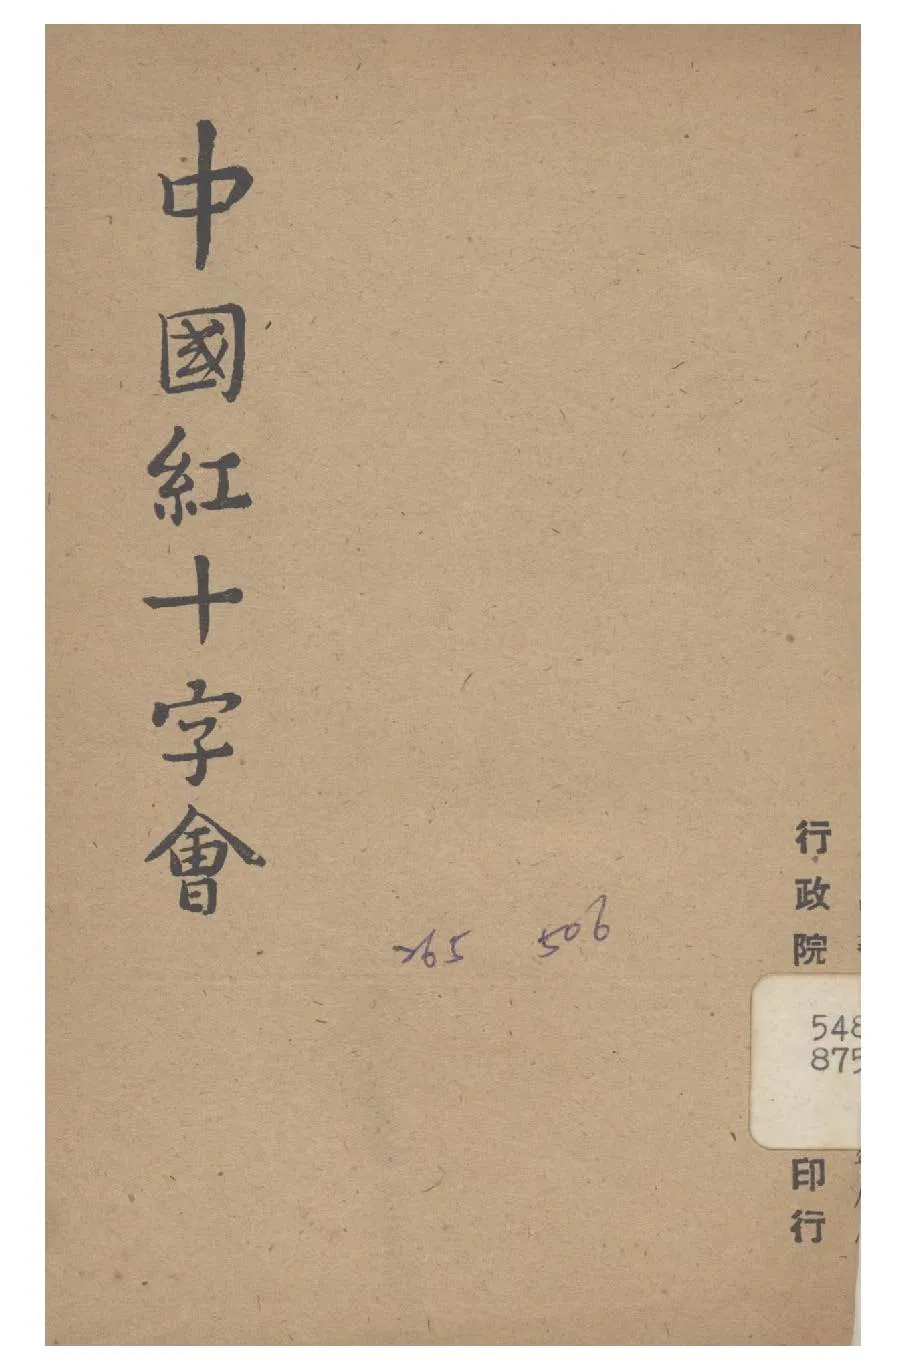 中國紅十字會
行政院
印行
548
875